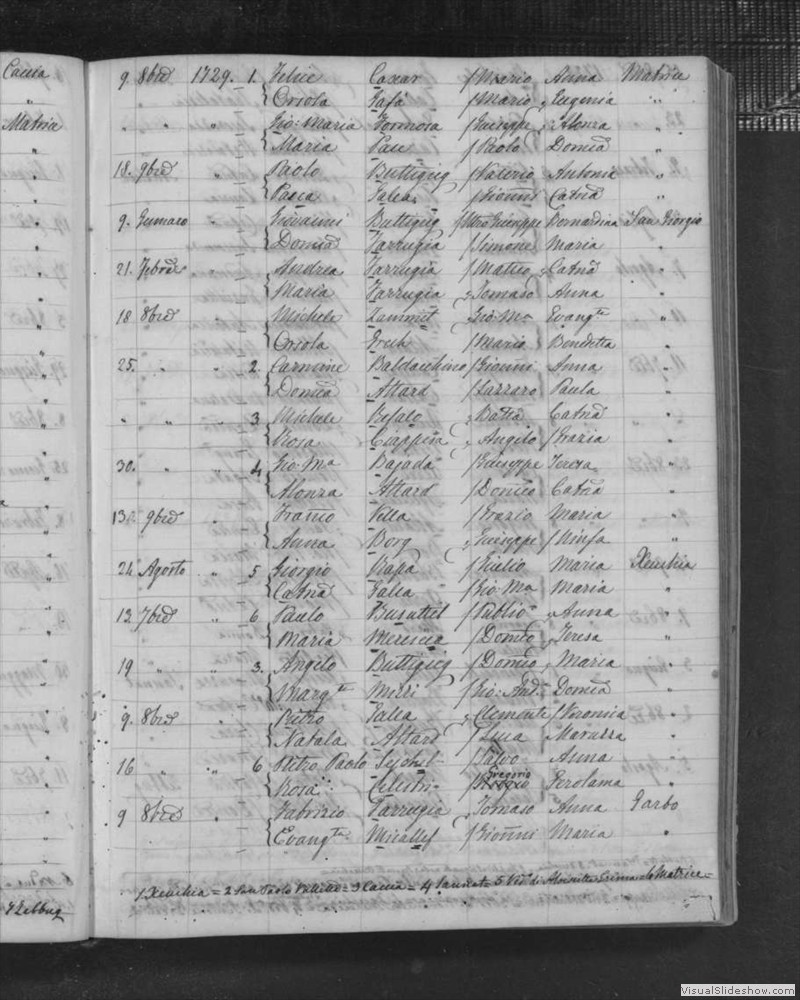 Caccia
"
Matrice
9. 8bre 1729. 1. Felice Caxar / Mario Anna Matrice
Orsola Gafà / Mario Eugenia "
" " " Gio: Maria Formosa / Giuseppe Alonza "
Maria Pace / Paolo Domca "
18. 9bre Paolo Buttigieg / Valerio Antonia "
Pasca Galea / Gionni Catna "
9. Gennaro " Giovanni Buttigieg / Mro Giuseppe Bernardina San Giorgio
Domca Farrugia / Simone Maria "
21. Febre " Andrea Farrugia / Matteo Catna "
Maria Farrugia Tomaso Anna "
18 8bre " Michele Zammit Gio: Ma Evangta "
Orsola Grech / Mario Bendetta "
25. " " 2. Carmine Baldacchino / Gionni Anna "
Domca Attard / Lazzaro Paula "
" " " 3 Michele Besalo Batta Catna "
Rosa Ciappara Angilo Grazia "
30. " " 4 Gio: Ma Bajada / Giuseppe Teresa "
Alonza Attard / Domco Catna "
13. 9bre " Franco Villa / Grazio Maria "
Anna Borg Giuseppe / Ninfa "
24. Agosto " 5 Giorgio Rapa / Giulio Maria Xeuchia
Catna Galea / Gio: Ma Maria "
13 7bre " 6 Paulo Busuttil / Publio Anna "
Maria Mercieca / Domco Teresa "
19 " " 3. Angilo Buttigieg / Domco Maria "
Margta Mizzi / Gio: And. Domca "
9. 8bre " Pietro Galea Clemente / Veronica "
Natala Attard / Luca Maruzza "
16 " " 6 Pietro Paolo Sychel / Salvo Anna "
Gregorio
Rosa Celestri Gerolama "
9 8bre " Fabrizio Farrugia Tomaso Anna Garbo
Evangta Micallef / Gionni Maria "
1 Xeuchia = 2 San Paolo Valletta = 3 Caccia = 4 Sannat = 5 Vid: di Matrice =
4 Zebbug
VisualSlideshow.com